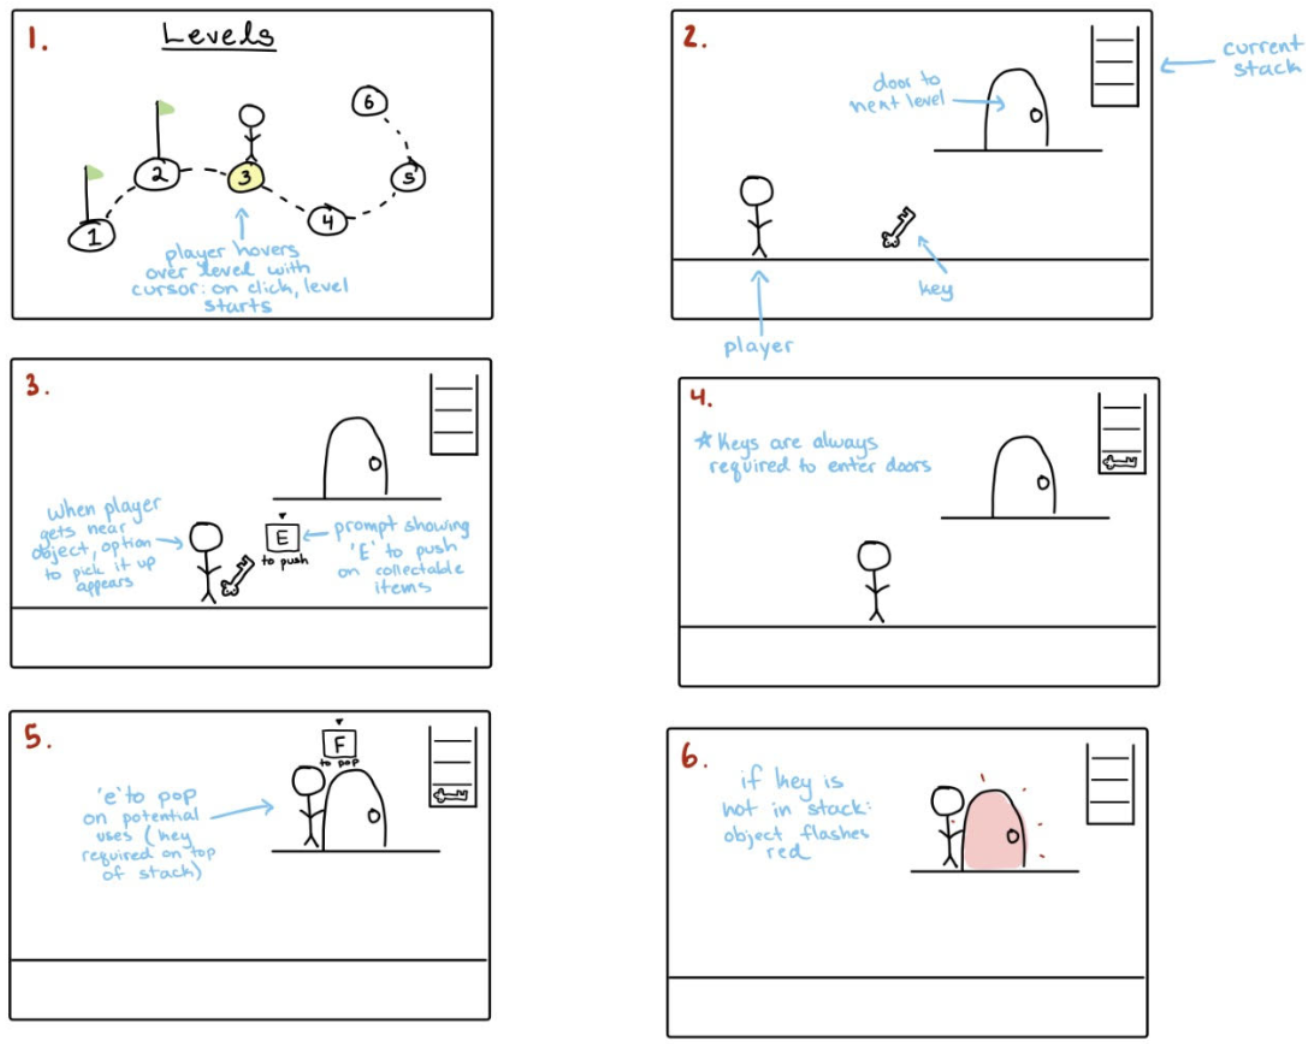 1.
Levels
1
2
3
4
5
6
player hovers
over level with
cursor: on click, level
starts
2.
door to
next level
current
stack
key
player
3.
when player
gets near
object, option
to pick it up
appears
E
to push
prompt showing
'E' to push
on collectable
items
4.
* Keys are always
required to enter doors
5.
F
to pop
'e' to pop
on potential
uses (key
required on top
of stack)
6.
if key is
not in stack:
object flashes
red